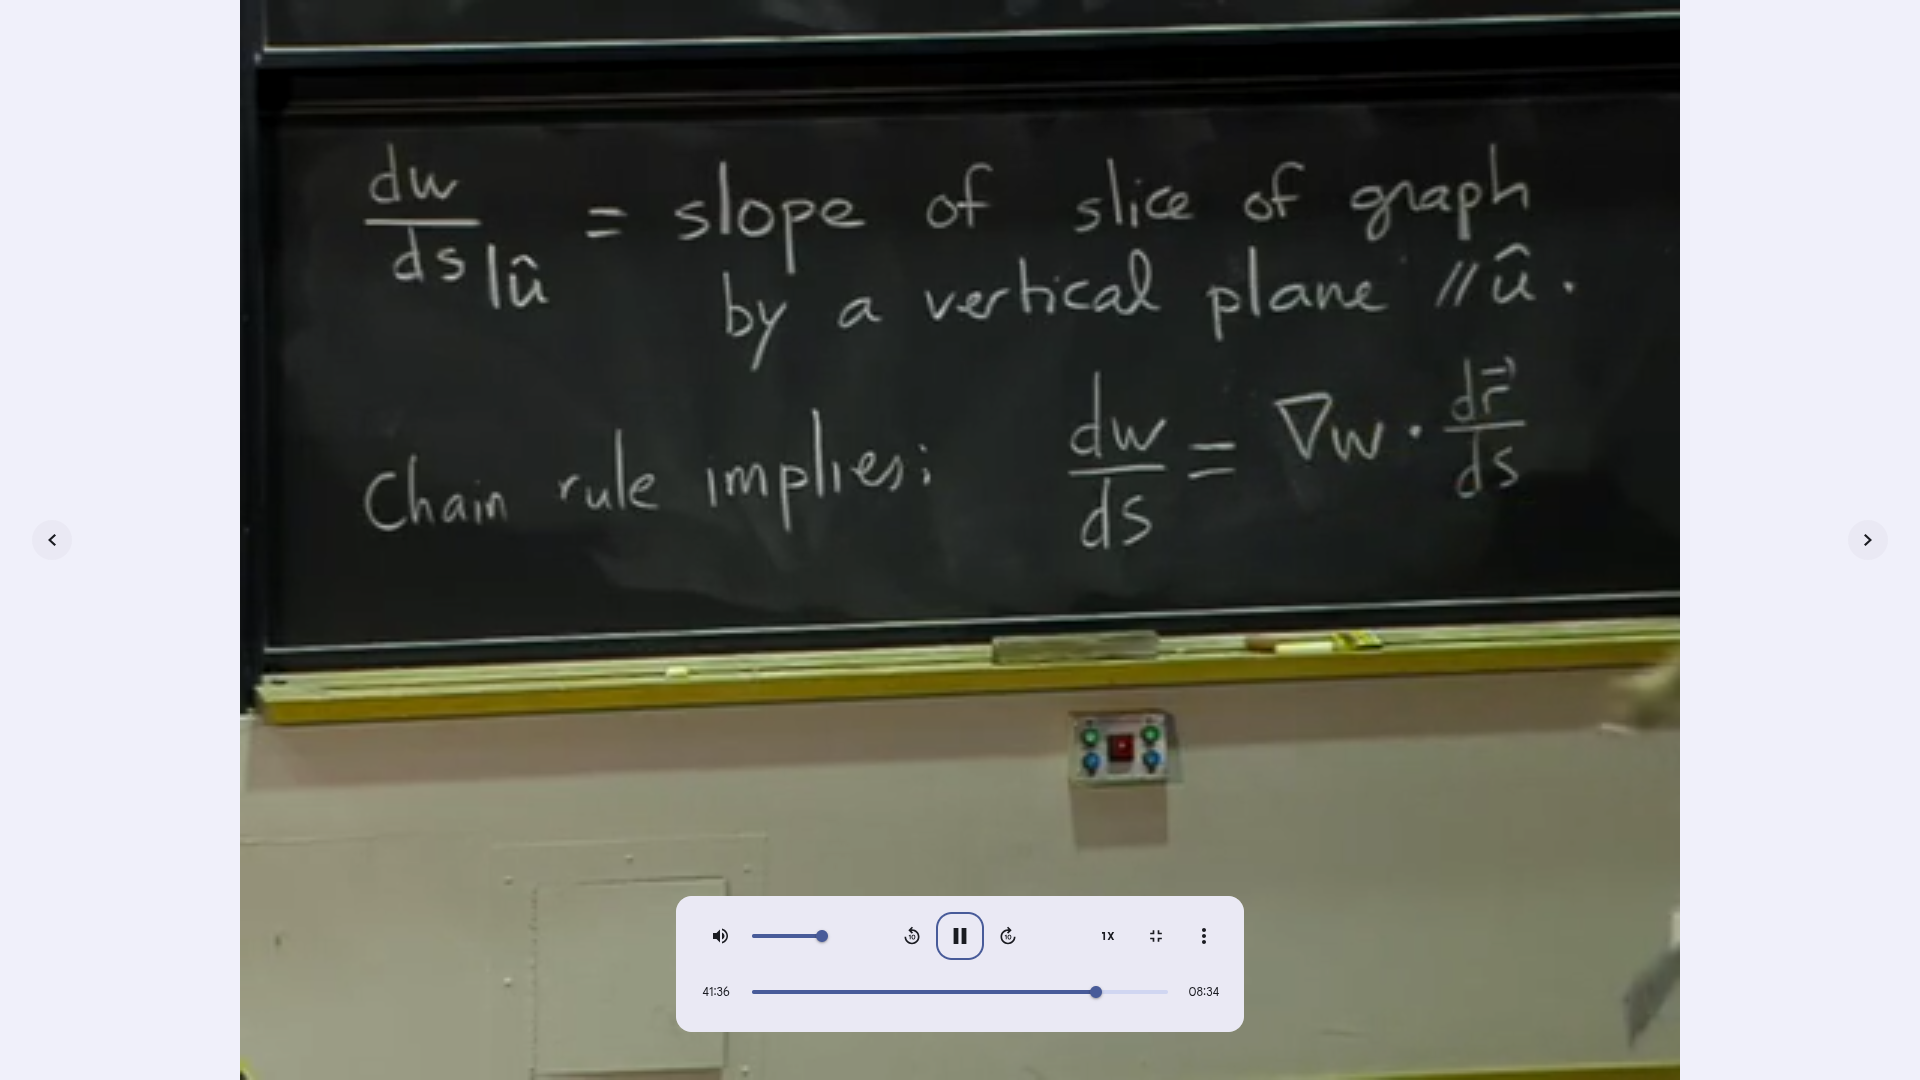 dw/ds|û = slope of slice of graph
by a vertical plane // û.
Chain rule implies: dw/ds = ∇w · dr⃗/ds
10
10
1X
41:36
08:34